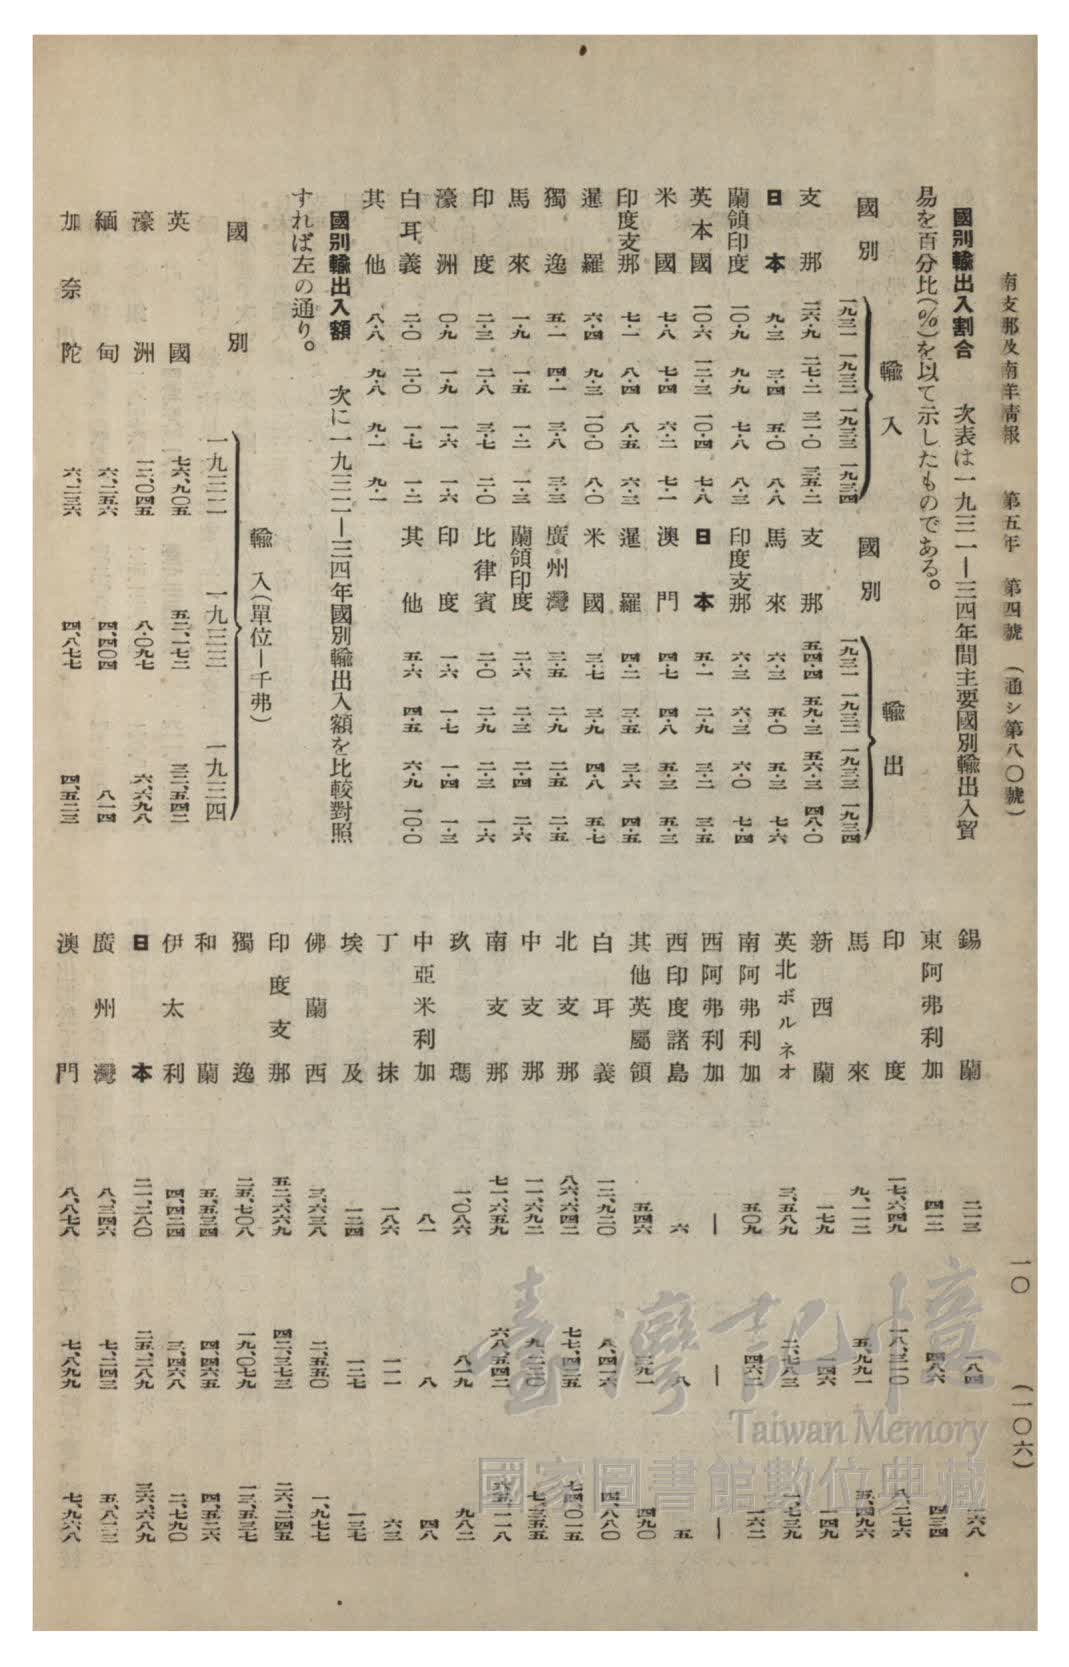 南支那及南洋情報 第五年 第四號 (通シ第八〇號) 一〇 (一〇六)
國別輸出入割合 次表は一九三一―三四年間主要國別輸出入貿
易を百分比(%)を以て示したものである。
輸入
國別 一九三一 一九三二 一九三三 一九三四
支那 二六・九 二七・二 三一・〇 三五・二
日本 九・三 三・四 五・〇 八・八
蘭領印度 一〇・九 九・九 七・八 八・三
英本國 一〇・六 一二・三 一〇・四 七・八
米國 七・八 七・四 六・二 七・一
印度支那 七・一 八・四 八・五 六・三
暹羅 六・四 九・三 一〇・〇 八・〇
獨逸 五・一 四・一 三・八 三・三
馬來 一・九 一・五 一・二 一・三
印度 二・三 二・八 三・七 二・〇
濠洲 〇・九 一・九 一・六 一・六
白耳義 二・〇 二・〇 一・七 一・二
其他 八・八 九・八 九・一 九・一
輸出
國別 一九三一 一九三二 一九三三 一九三四
支那 五四・四 五九・三 五六・三 四八・〇
馬來 六・三 五・〇 五・三 七・六
印度支那 六・三 六・三 六・〇 七・四
日本 五・一 二・九 三・二 三・五
澳門 四・七 四・八 五・三 五・三
暹羅 四・二 三・五 三・六 四・五
米國 三・七 三・九 四・八 五・七
廣州灣 三・五 二・九 二・五 二・五
蘭領印度 二・六 二・三 二・四 二・六
比律賓 二・〇 二・九 二・三 一・六
印度 一・六 一・七 一・四 一・三
其他 五・六 四・五 六・九 一〇・〇
國別輸出入額 次に一九三二―三四年國別輸出入額を比較對照
すれば左の通り。
輸入(單位―千弗)
國別 一九三二 一九三三 一九三四
英國 七六、九〇五 五二、一七二 三二、五四二
濠洲 一二、〇四五 八・〇九七 六、六九八
緬甸 六、二五六 四、四〇四 八一四
加奈陀 六、二三六 四、八七七 四、五二三
錫蘭 二一三 一八四 二六八
東阿弗利加 四一二 四八六 四三四
印度 一七、六四九 一八、三一〇 八、二七六
馬來 九、一一二 五、九九一 五、四九六
新西蘭 一七九 一四六 一四九
英北ボルネオ 三、五八九 二、七八三 一、七三九
南阿弗利加 五〇九 四六二 一六二
西阿弗利加 ― ― ―
西印度諸島 六 八 五
其他英屬領 五四六 三九一 四九〇
白耳義 一二、九二〇 八、四一六 四、八八〇
北支那 八六、六四二 七七、四三五 七四、〇一五
中支那 一一、六九二 九、二三〇 七、三五五
南支那 七一、六五九 六八、五四二 六五、一一八
玖瑪 一、〇八六 八一九 九八二
中亞米利加 八一 八 四八
丁抹 一八六 一一一 六三
埃及 一二四 一二七 一三七
佛蘭西 三、六三八 二、五五〇 一、九七七
印度支那 五二、六六九 四二、三七三 二六、二四五
獨逸 二五、七〇八 一九、〇七九 一三、五三七
和蘭 五、五三四 四、四六五 四、五二六
伊太利 四、四二四 三、四六八 二、七九〇
日本 二一、三八〇 二五、二八九 三六、六八九
廣州灣 八、三四六 七、二四三 五、八二三
澳門 八、八七八 七、八九九 七、九六八
臺灣記憶
Taiwan Memory
國家圖書館數位典藏